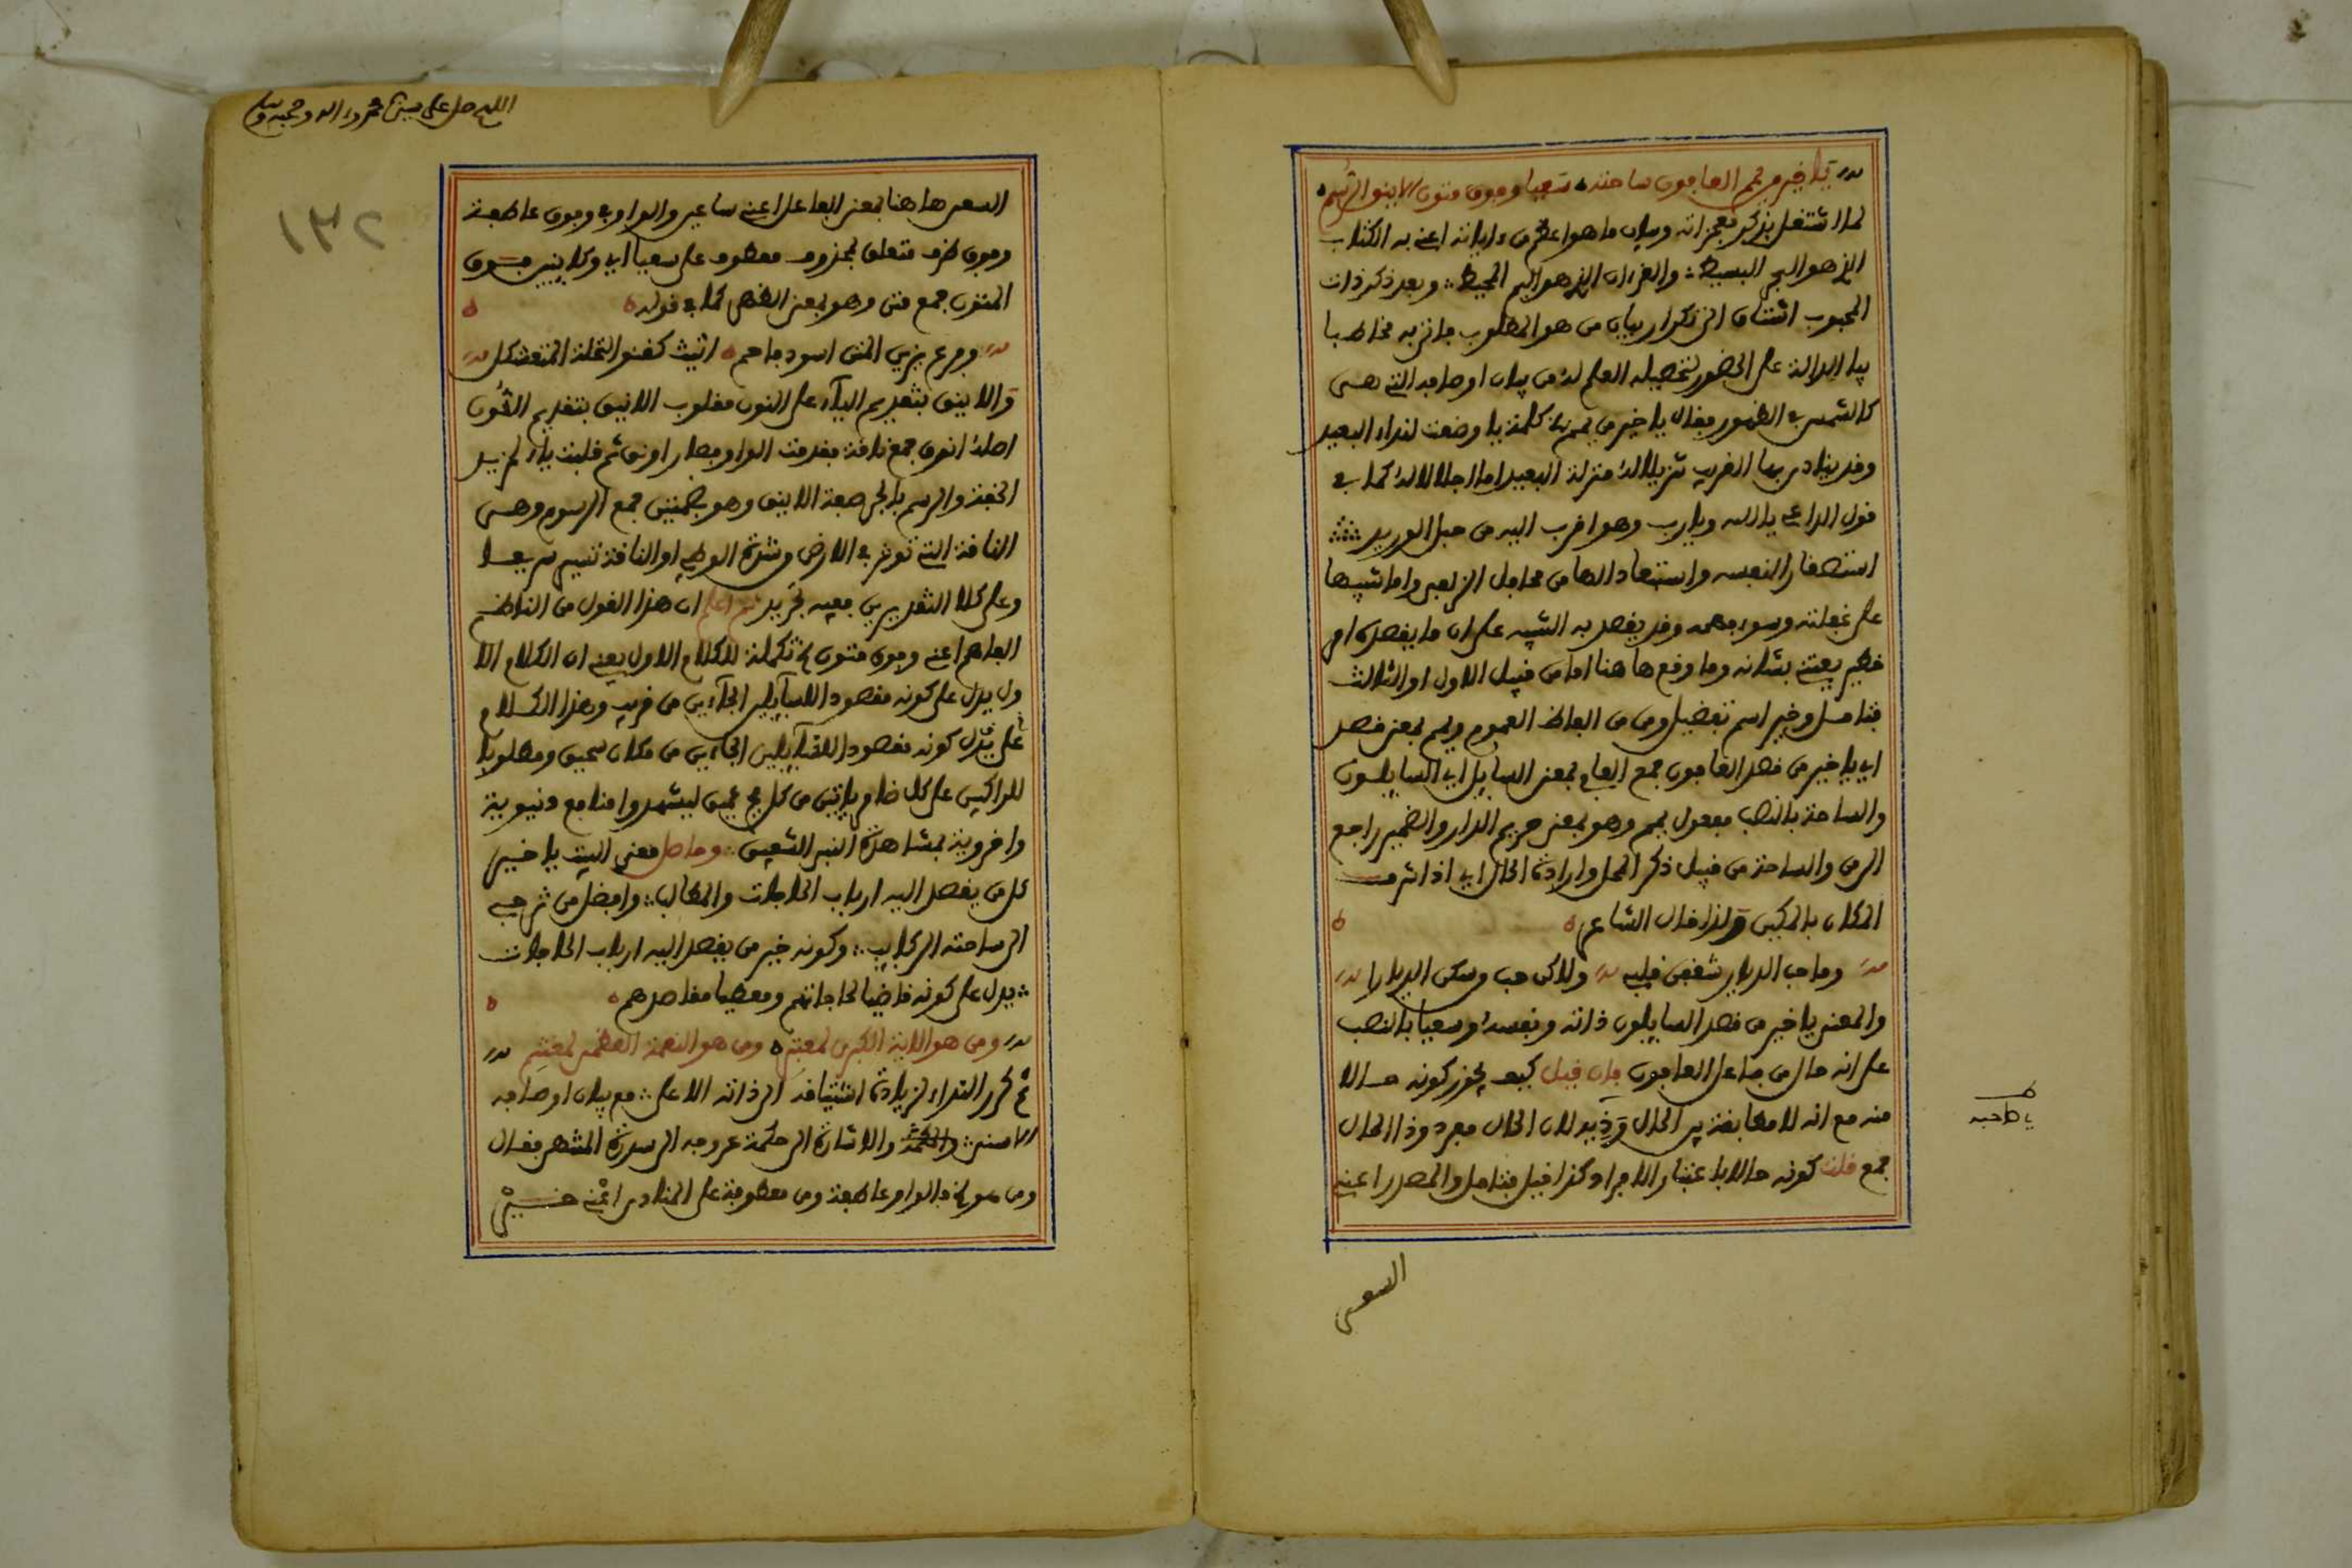 يا خير من يمم العافون ساحته سعيا وفوق متون الاينق الرسم
لما اشتغل بذكر معجزاته وبيان ما هو اعظم من ءاياته اعني به الكتاب
الذي هو البحر البسيط والقرءان الذي هو اليم المحيط وبعد ذكر ذات
المحبوب اشتاق الى تكرار بيان من هو المطلوب فاتى به مخاطبا
بيا الدالة على الحضور لتحصيله العلم له من بيان اوصافه التي هي
كالشمس في الظهور فقال يا خير من يمم كلمة يا وضعت لنداء البعيد
وقد ينادى بها القريب تنزيلا له منزلة البعيد اما اجلالا له كما في
قول الداعي يا الله ويا رب وهو اقرب اليه من حبل الوريد
استصغارا لنفسه واستبعادا لها من محافل الزلفى واما تنبيها
على غفلته وسوء فهمه وقد يقصد به التنبيه على ان ما يقصده امر
خطير يعتنى بشانه وما وقع ها هنا اما من قبيل الاول او الثالث
فتامل وخير اسم تفضيل ومن من الفاظ العموم ويمم بمعنى قصد
اي يا خير من قصد العافون جمع العافي بمعنى السايل اي السايلون
والساحة بالنصب مفعول يمم وهو بمعنى حريم الدار والضمير راجع
الى من والساحة من قبيل ذكر المحل وارادة الحال اي اذا شرف
المكان بالمكين ولذا قال الشاعر
وما حب الديار شغفن قلبي ولاكن حب من سكن الديارا
والمعنى يا خير من قصد السايلون ذاته ونفسه وسعيا بالنصب
على انه حال من فاعل العافون فان قيل كيف يجوز كونه حالا
منه مع انه لا مطابقة بين الحال وذيه لان الحال مفرد وذا الحال
جمع قلت كونه حالا باعتبار الافراد كذا قيل فتامل والمصدر اعني
يا صاحبه
السعي
اللهم صل على سيدنا محمد وءاله وصحبه وسلم
السعي ها هنا بمعنى الفاعل اعني ساعين والواو في وفوق عاطفة
وفوق ظرف متعلق بمحذوف معطوف على سعيا اي وكاينين فوق
المتون جمع متن وهو بمعنى الظهر كما في قوله
وفرع يزين المتن اسود فاحم اثيث كقنو النخلة المتعثكل
والاينق بتقديم الياء على النون مقلوب الانيق بتقديم النون
اصله انوق جمع ناقة فقدمت الواو فصار اونق ثم قلبت ياء لمزيد
الخفة والرسم بالجر صفة الاينق وهو بضمتين جمع الرسوم وهي
الناقة التي تؤثر في الارض من شدة الوطي او الناقة تسير سريعا
وعلى كلا التقديرين ففيه تجريد ثم اعلم ان هذا القول من الناظم
الفاهم اعني وفوق متون تكملة للكلام الاول يعني ان الكلام الا
ول يدل على كونه مقصودا للسايلين الجاءين من قريب وهذا الكلام
على يدل كونه مقصودا للسايلين الجاءين من مكان سحيق ومطلوبا
للراكبين على كل ضامر ياتين من كل فج عميق ليشهدوا منافع دنيوية
واخروية بمشاهدة النبي الشفيق وحاصل معنى البيت يا خير
كل من يقصد اليه ارباب الحاجات والمطالب وافضل من تزجى
الى ساحته الركايب وكونه خير من يقصد اليه ارباب الحاجات
يدل على كونه قاضيا لحاجاتهم ومعطيا مقاصدهم
ومن هو الاية الكبرى لمعتبر ومن هو النعمة العظمى لمغتنم
ثم كرر النداء لزيادة اشتياقه الى ذاته الاعلى مع بيان اوصافه
الاسنى والاشارة الى حكمة عروجه الى سدرة المنتهى فقال
ومن هو فالواو عاطفة ومن معطوفة على المنادى اعني خير